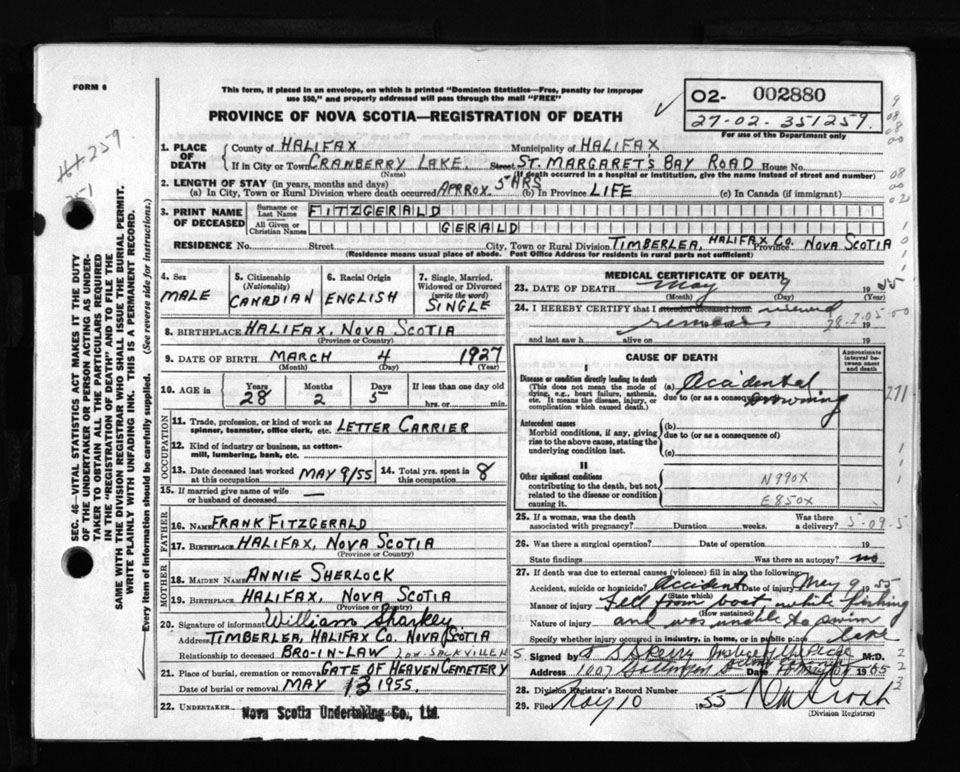 FORM 6
This form, if placed in an envelope, on which is printed "Dominion Statistics—Free, penalty for improper
use $50," and properly addressed will pass through the mail "FREE"
PROVINCE OF NOVA SCOTIA—REGISTRATION OF DEATH
02- 002880
27-02-351259.
For use of the Department only
SEC. 46—VITAL STATISTICS ACT MAKES IT THE DUTY
OF THE UNDERTAKER OR PERSON ACTING AS UNDER-
TAKER TO OBTAIN ALL THE PARTICULARS REQUIRED
IN THE "REGISTRATION OF DEATH" AND TO FILE THE
SAME WITH THE DIVISION REGISTRAR WHO SHALL ISSUE THE BURIAL PERMIT.
WRITE PLAINLY WITH UNFADING INK. THIS IS A PERMANENT RECORD.
Every item of information should be carefully supplied. (See reverse side for instructions.)
1. PLACE OF DEATH
County of HALIFAX Municipality of HALIFAX
If in City or Town CRANBERRY LAKE, Street ST. MARGARET'S BAY ROAD House No.
(Name) (If death occurred in a hospital or institution, give the name instead of street and number)
2. LENGTH OF STAY (in years, months and days)
(a) In City, Town or Rural Division where death occurred APPROX. 5 HRS (b) In Province LIFE (c) In Canada (if immigrant)
3. PRINT NAME OF DECEASED
Surname or Last Name FITZGERALD
All Given or Christian Names GERALD
RESIDENCE No. Street City, Town or Rural Division TIMBERLEA, HALIFAX CO. Province NOVA SCOTIA
(Residence means usual place of abode. Post Office Address for residents in rural parts not sufficient)
4. Sex MALE
5. Citizenship (Nationality) CANADIAN
6. Racial Origin ENGLISH
7. Single, Married, Widowed or Divorced (write the word) SINGLE
8. BIRTHPLACE HALIFAX, NOVA SCOTIA
(Province or Country)
9. DATE OF BIRTH MARCH 4 1927
(Month) (Day) (Year)
10. AGE in Years 28 Months 2 Days 5 If less than one day old hrs. or min.
OCCUPATION
11. Trade, profession, or kind of work as spinner, teamster, office clerk, etc. LETTER CARRIER
12. Kind of industry or business, as cotton-mill, lumbering, bank, etc.
13. Date deceased last worked at this occupation MAY 9/55 14. Total yrs. spent in this occupation 8
15. If married give name of wife or husband of deceased —
FATHER
16. NAME FRANK FITZGERALD
17. Birthplace HALIFAX, NOVA SCOTIA
(Province or Country)
MOTHER
18. MAIDEN NAME ANNIE SHERLOCK
19. Birthplace HALIFAX, NOVA SCOTIA
(Province or Country)
20. Signature of informant William Sharkey
Address TIMBERLEA, HALIFAX CO. NOVA SCOTIA
Relationship to deceased BRO-IN-LAW LOW. SACKVILLE N
21. Place of burial, cremation or removal GATE OF HEAVEN CEMETERY
Date of burial or removal MAY 13 1955.
22. UNDERTAKER Nova Scotia Undertaking Co., Ltd.
MEDICAL CERTIFICATE OF DEATH
23. DATE OF DEATH May 9 1955
(Month) (Day) (Year)
24. I HEREBY CERTIFY that I attended deceased from: viewed
remains 28-2-05-00 19
and last saw h alive on 19
CAUSE OF DEATH
Approximate interval between onset and death
I
Disease or condition directly leading to death (a) Accidental
(This does not mean the mode of dying, e.g., heart failure, asthenia, etc. It means the disease, injury, or complication which caused death.)
due to (or as a consequence of) Drowning
271
Antecedent causes
Morbid conditions, if any, giving rise to the above cause, stating the underlying condition last.
(b)
due to (or as a consequence of)
(c)
II
Other significant conditions
contributing to the death, but not related to the disease or condition causing it.
N990X
E850X
25. If a woman, was the death associated with pregnancy? Duration weeks. Was there a delivery? 5-09-5
26. Was there a surgical operation? Date of operation 19
State findings Was there an autopsy? no
27. If death was due to external causes (violence) fill in also the following:
Accident, suicide or homicide? Accident Date of injury May 9 1955
(State which)
Manner of injury Fell from boat while fishing
(How sustained)
Nature of injury and was unable to swim
Specify whether injury occurred in industry, in home, or in public place lake
Signed by M.D.
Address 1007 Date 1955
28. Division Registrar's Record Number
29. Filed May 10 1955
(Division Registrar)